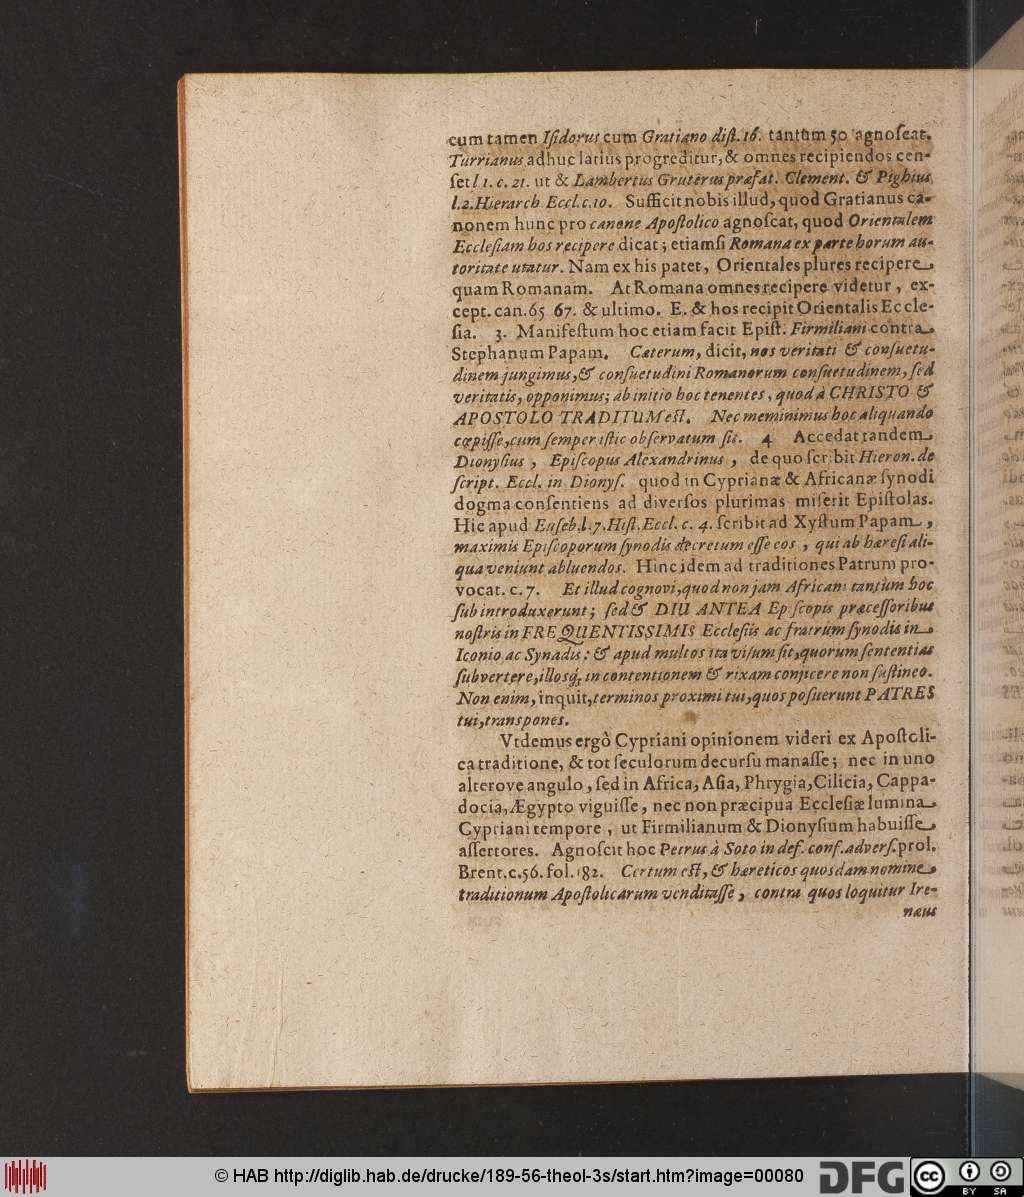 cum tamen Iſidorus cum Gratiano diſt. 16. tantùm 50 agnoſcat.
Turrianus adhuc latius progreditur, & omnes recipiendos cen-
ſet l 1. c. 21. ut & Lambertus Gruterus præfat. Clement. & Pighius
l. 2. Hierarch Eccl. c. 10. Sufficit nobis illud, quod Gratianus ca-
nonem hunc pro canone Apoſtolico agnoſcat, quod Orientalem
Eccleſiam hos recipere dicat; etiamſi Romana ex parte horum au-
toritate utatur. Nam ex his patet, Orientales plures recipere
quam Romanam. At Romana omnes recipere videtur, ex-
cept. can. 65 67. & ultimo. E. & hos recipit Orientalis Eccle-
ſia. 3. Manifeſtum hoc etiam facit Epiſt. Firmiliani contra
Stephanum Papam. Cæterum, dicit, nos veritati & conſuetu-
dinem jungimus, & conſuetudini Romanorum conſuetudinem, ſed
veritatis, opponimus; ab initio hoc tenentes, quod à CHRISTO &
APOSTOLO TRADITUM eſt. Nec meminimus hoc aliquando
cœpiſſe, cum ſemper iſtic obſervatum ſit. 4 Accedat tandem
Dionyſius, Epiſcopus Alexandrinus, de quo ſcribit Hieron. de
ſcript. Eccl. in Dionyſ. quod in Cyprianæ & Africanæ ſynodi
dogma conſentiens ad diverſos plurimas miſerit Epiſtolas.
Hic apud Euſeb. l. 7. Hiſt. Eccl. c. 4. ſcribit ad Xyſtum Papam,
maximis Epiſcoporum ſynodis decretum eſſe eos, qui ab hæreſi ali-
qua veniunt abluendos. Hinc idem ad traditiones Patrum pro-
vocat. c. 7. Et illud cognovi, quod non jam Africani tantùm hoc
ſub introduxerunt; ſed & DIU ANTEA Epiſcopis præceſſoribus
noſtris in FREQUENTISSIMIS Eccleſiis ac fratrum ſynodis in
Iconio ac Synadis: & apud multos ita viſum ſit, quorum ſententias
ſubvertere, illosq́; in contentionem & rixam conjicere non ſuſtineo.
Non enim, inquit, terminos proximi tui, quos poſuerunt PATRES
tui, transpones.
Vtdemus ergò Cypriani opinionem videri ex Apoſtoli-
ca traditione, & tot ſeculorum decurſu manaſſe; nec in uno
alterove angulo, ſed in Africa, Aſia, Phrygia, Cilicia, Cappa-
docia, Ægypto viguiſſe, nec non præcipua Eccleſiæ lumina
Cypriani tempore, ut Firmilianum & Dionyſium habuiſſe
aſſertores. Agnoſcit hoc Petrus à Soto in def. conf. adverſ. prol.
Brent. c. 56. fol. 182. Certum eſt, & hæreticos quosdam nomine
traditionum Apoſtolicarum venditaſſe, contra quos loquitur Ire-
næus
© HAB http://diglib.hab.de/drucke/189-56-theol-3s/start.htm?image=00080
DFG
cc BY SA